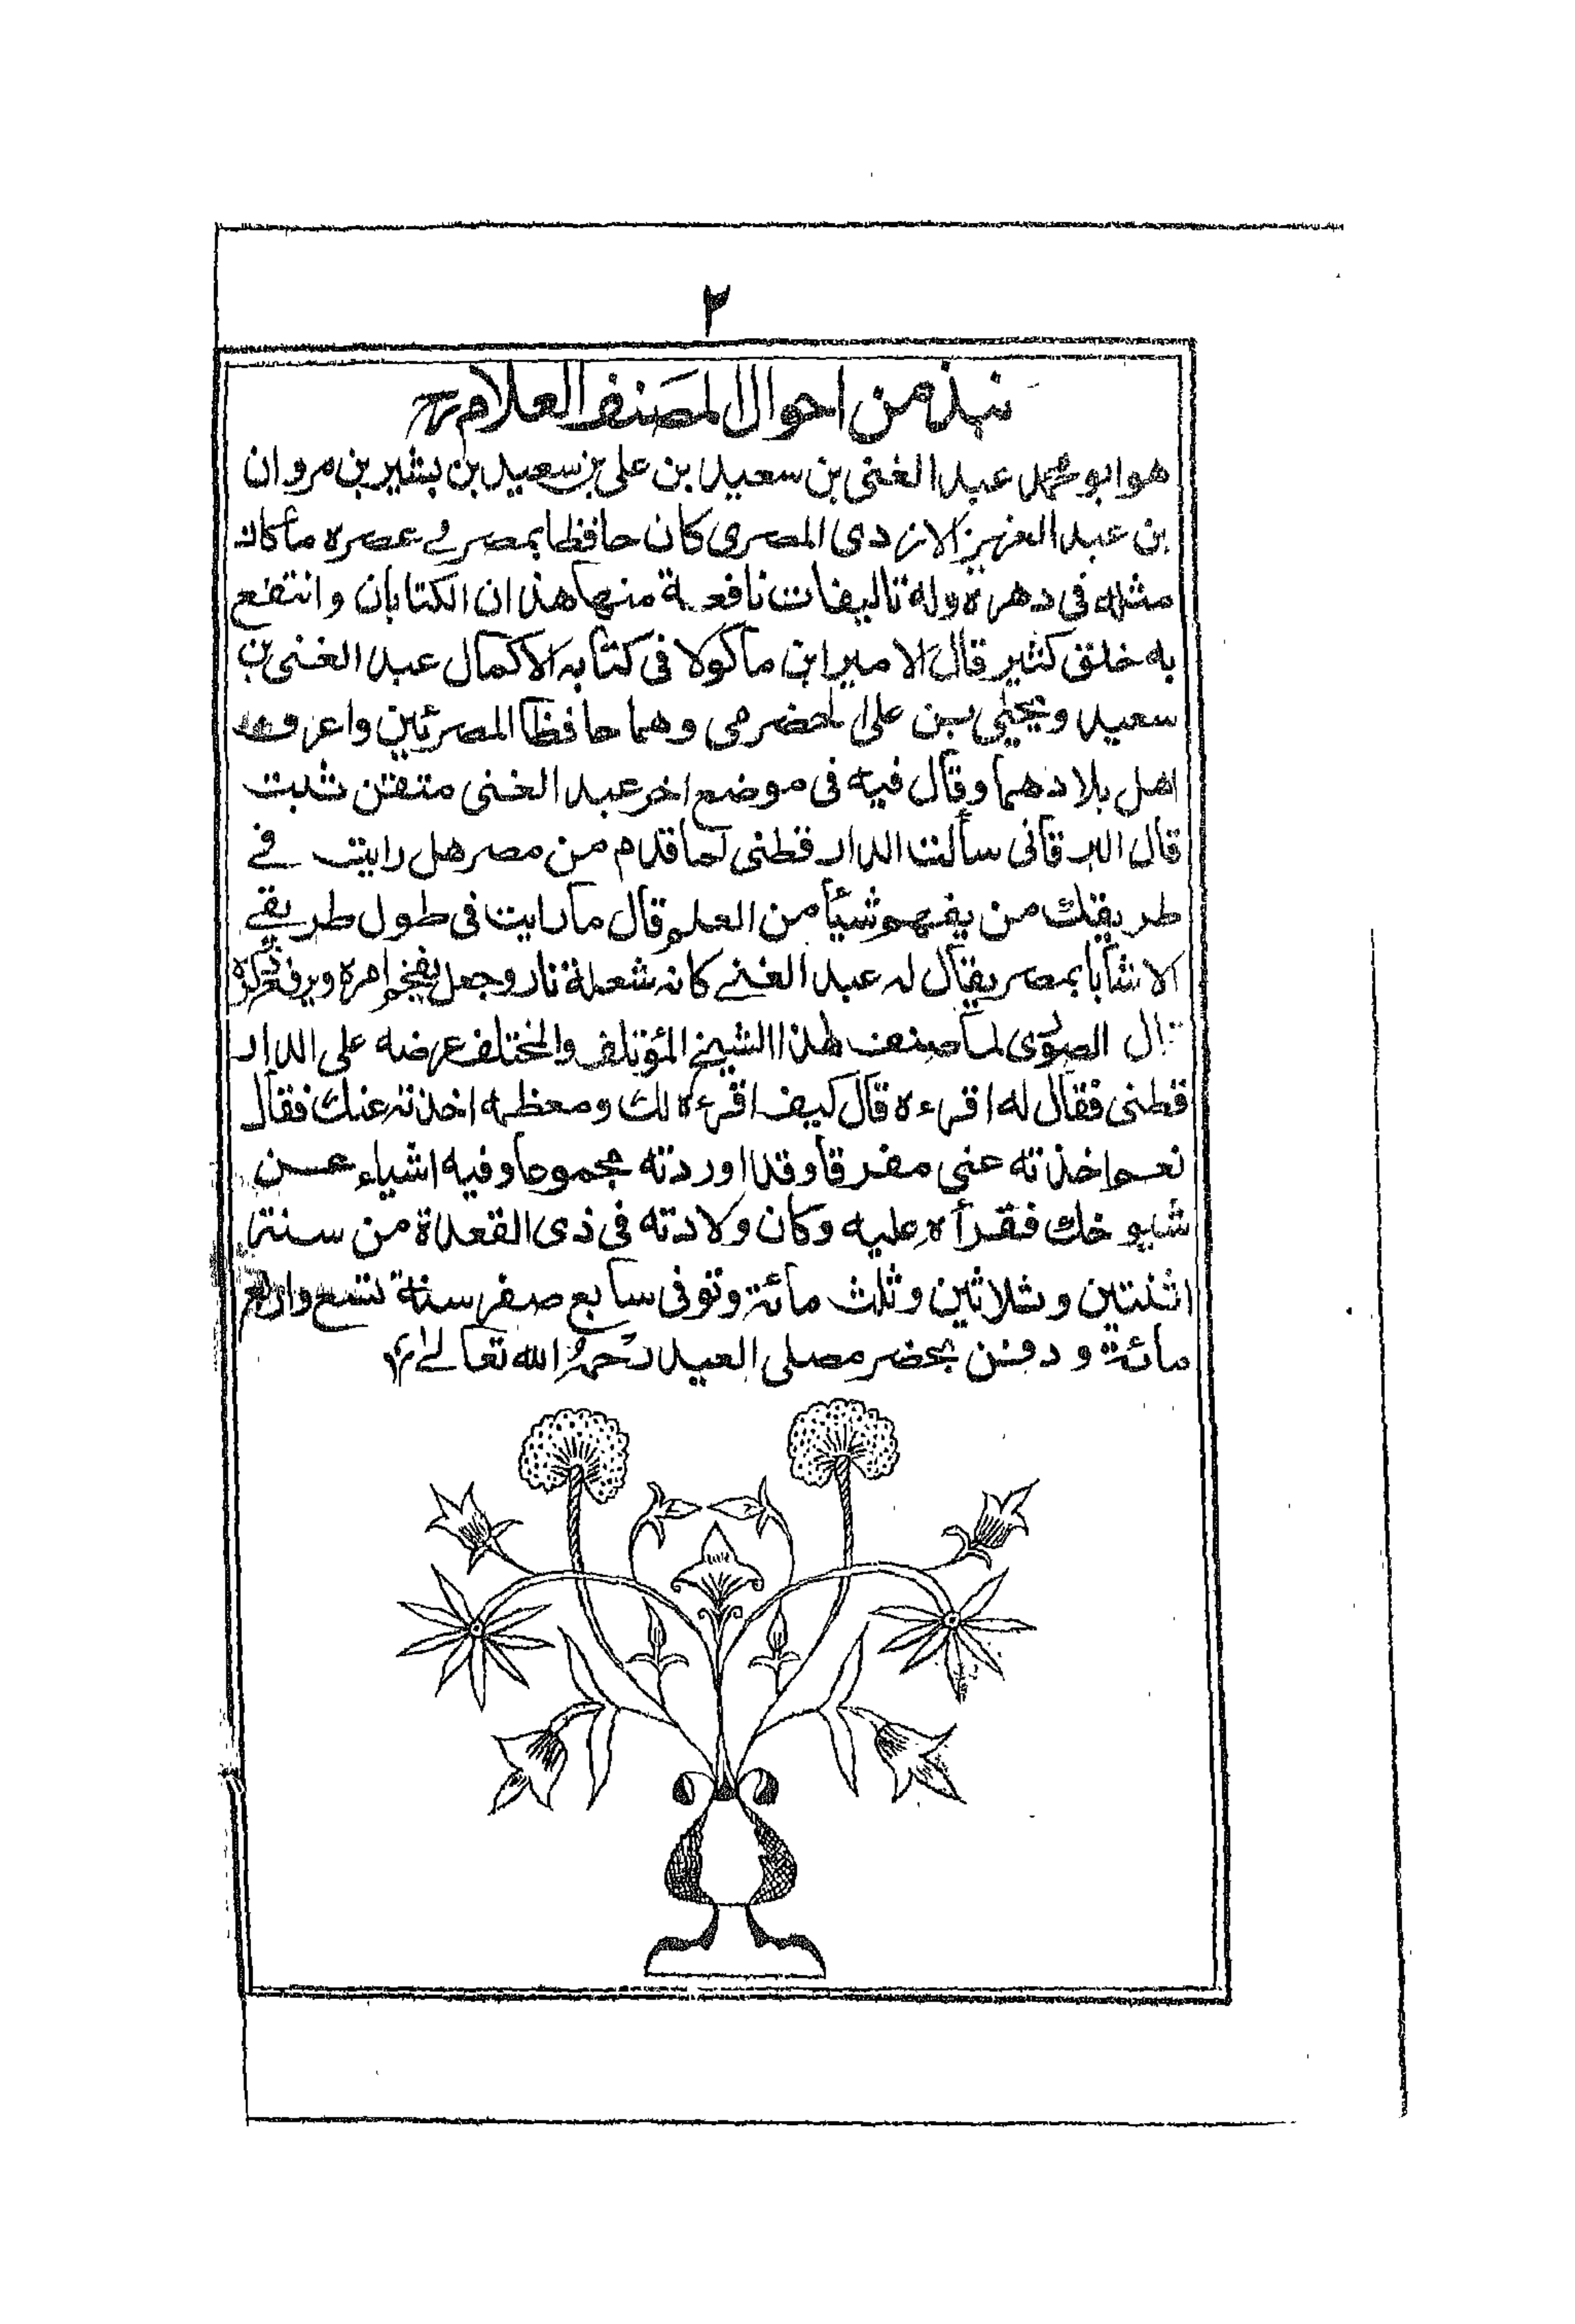 ٢
نبذ من احوال المصنف العلام
هو ابو محمد عبد الغنی بن سعید بن علی بن سعید بن بشیر بن مروان
بن عبد العزیز الازدی المصری کان حافظا بمصر فے عصره ما کان
مثله فی دهره وله تالیفات نافعة منها هذان الکتابان وانتفع
به خلق کثیر قال الامیر ابن ماکولا فی کتابه الاکمال عبد الغنی بن
سعید ویحیی بن علی الحضرمی وهما حافظا المصرئین واعرف
اهل بلادهما وقال فیه فی موضع اخر عبد الغنی متقن ثبت
قال البرقانی سألت الدار قطنی لما قدم من مصر هل رایت فے
طریقك من یفهم شیأ من العلم قال ما رایت فی طول طریقے
الا شابا بمصر یقال له عبد الغنے کانه شعلة نار وجعل یفخم امره ویرفع ذکره
قال الصوری لما صنف هذا الشیخ المؤتلف والمختلف عرضه علی الدار
قطنی فقال له اقرءه قال کیف اقرءه لك ومعظمه اخذته عنك فقال
نعم اخذته عنی مفرقا وقد اوردته مجموعا وفیه اشیاء عن
شیوخك فقرأه علیه وکان ولادته فی ذی القعدة من سنة
اثنتین وثلاثین وثلث مائة وتوفی سابع صفر سنة تسع واربع
مائة ودفن بحضر مصلی العید رحمه الله تعالے